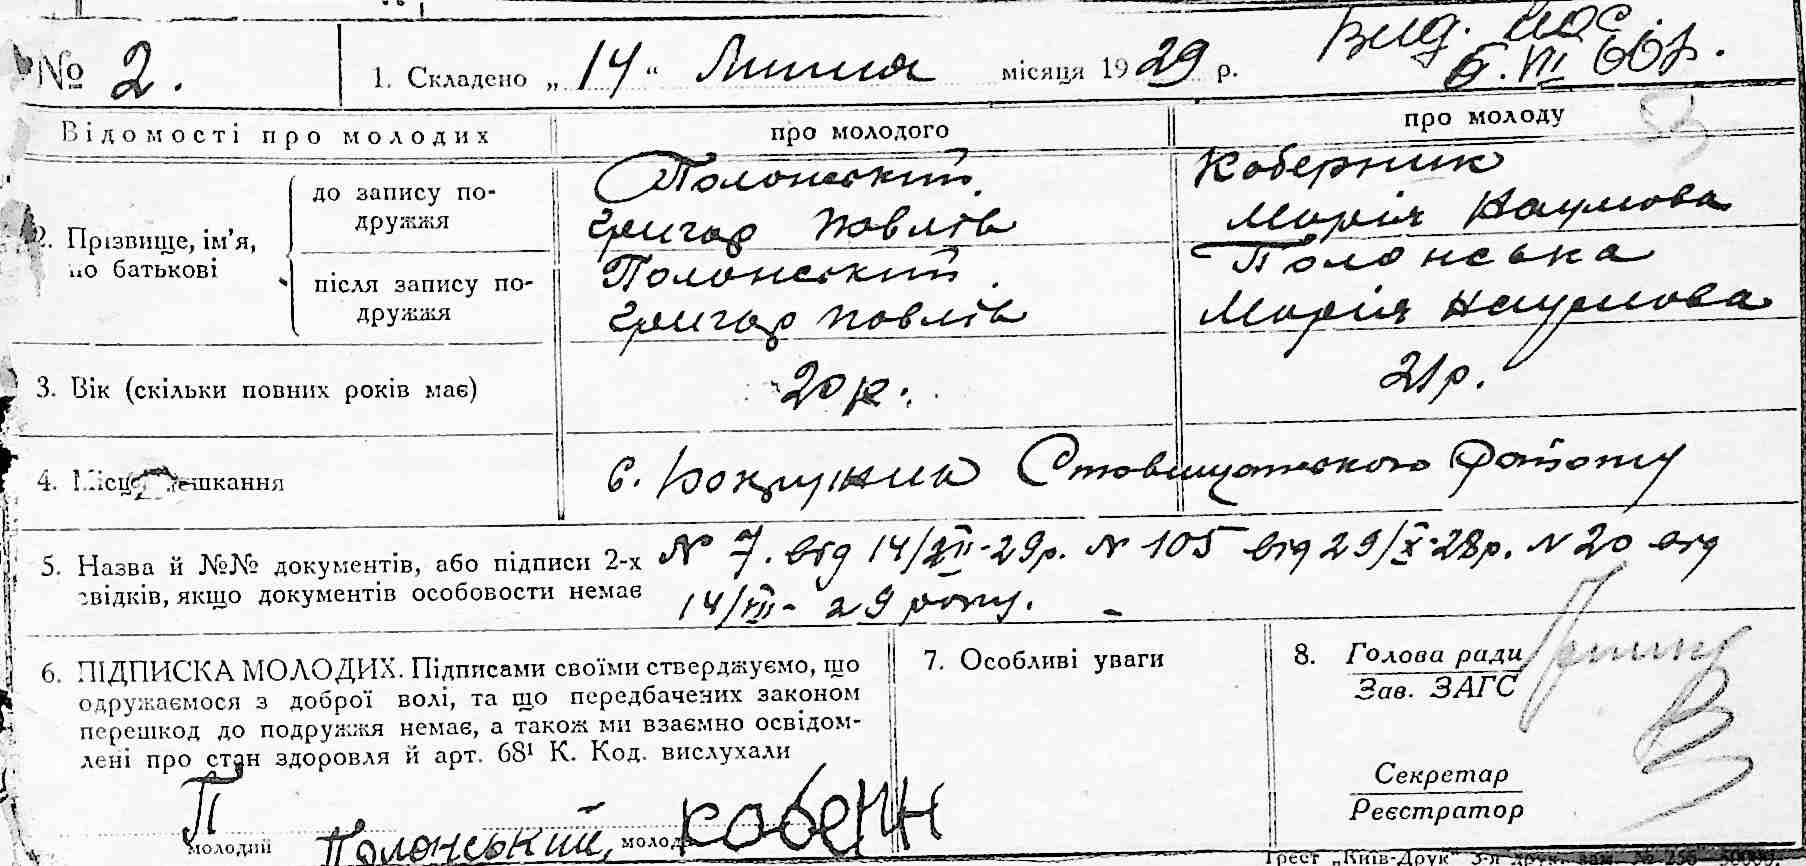 № 2.
1. Складено „ 14 “ Липня місяця 19 29 р.
Вид. пос
6. VII 66 р.
Відомості про молодих
про молодого
про молоду
53
2. Прізвище, ім’я, по батькові
до запису подружжя
Полонський
Григор Павлів
Коберник
Марія Наумова
після запису подружжя
Полонський
Григор Павлів
Полонська
Марія Наумова
3. Вік (скільки повних років має)
20 р.
21 р.
4. Місце мешкання
с. Стовищатського Району
5. Назва й №№ документів, або підписи 2-х
свідків, якщо документів особовости немає
N 7. від 14/VII-29р. N 105 від 29/X-28р. N 20 від
14/VII-29 року.
6. ПІДПИСКА МОЛОДИХ. Підписами своїми стверджуємо, що
одружаємося з доброї волі, та що передбачених законом
перешкод до подружжя немає, а також ми взаємно освідом-
лені про стан здоровля й арт. 68¹ К. Код. вислухали
П
молодий Полонський, молода Коберн
7. Особливі уваги
8. Голова ради
Зав. ЗАГС
Секретар
Реєстратор
Трест „Київ-Друк“ 3-я друк. зам. №